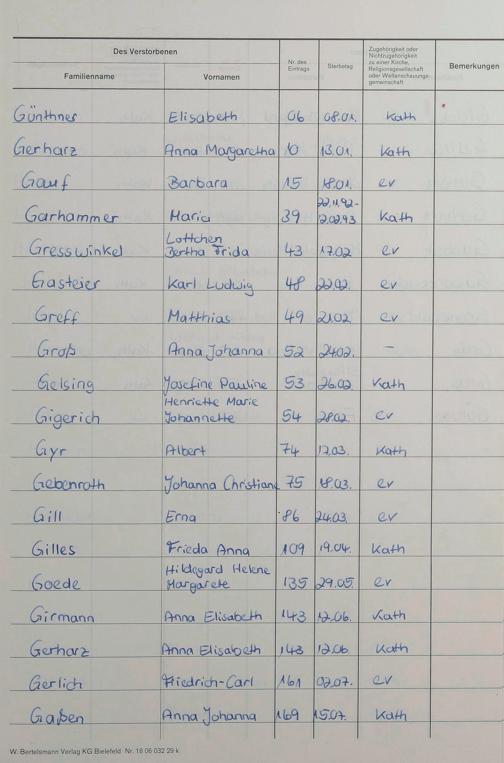 Des Verstorbenen
Familienname Vornamen Nr. des Eintrags Sterbetag Zugehörigkeit oder Nichtzugehörigkeit zu einer Kirche, Religionsgesellschaft oder Weltanschauungsgemeinschaft Bemerkungen
Günthner Elisabeth 06 08.01. Kath
Gerharz Anna Margaretha 10 13.01. Kath
Gauf Barbara 15 18.01. ev
Garhammer Maria 39 22.11.92- 2.02.93 Kath
Gresswinkel Lottchen Bertha Frida 43 17.02 ev
Gasteier Karl Ludwig 48 22.02. ev
Greff Matthias 49 21.02 ev
Groß Anna Johanna 52 24.02. –
Gelsing Josefine Pauline 53 26.02 Kath
Gigerich Henriette Marie Johannette 54 28.02. ev
Gyr Albert 74 17.03. Kath
Gebenroth Johanna Christiane 75 18.03. ev
Gill Erna 86 24.03. ev
Gilles Frieda Anna 109 19.04. Kath
Goede Hildegard Helene Margarete 135 29.05. ev
Girmann Anna Elisabeth 143 12.06. Kath
Gerharz Anna Elisabeth 143 12.06. Kath
Gerlich Friedrich-Carl 161 02.07. ev
Gaßen Anna Johanna 169 15.07. Kath
W. Bertelsmann Verlag KG Bielefeld Nr. 18 06 032 29 k